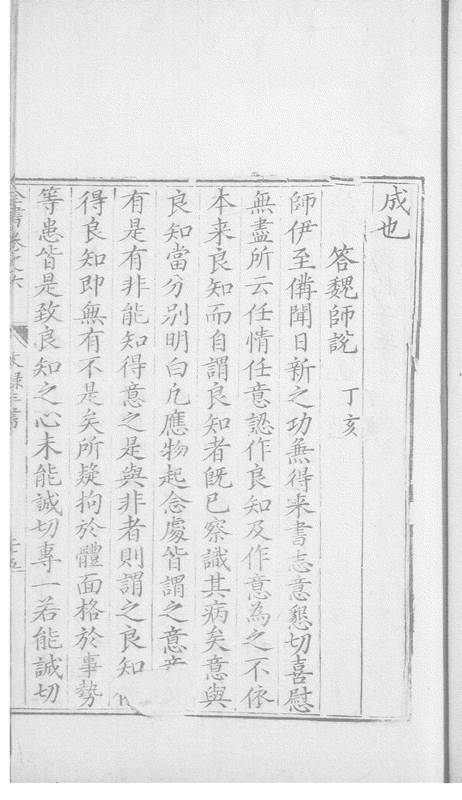 成也
答魏師說 丁亥
師伊至備聞日新之功無得来書志意懇切喜慰
無盡所云任情任意認作良知及作意為之不依
本来良知而自謂良知者既已察識其病矣意與
良知當分別明白凡應物起念處皆謂之意
有是有非能知得意之是與非者則謂之良知
得良知即無有不是矣所疑拘於體面格於事勢
等患皆是致良知之心未能誠切專一若能誠切
全書卷之六 文錄三書 二十五